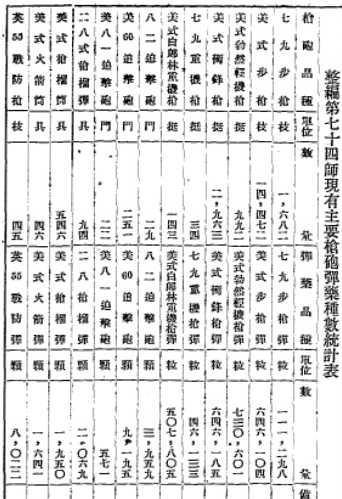 整編第七十四師現有主要槍砲彈藥種數統計表
槍砲品種 單位 數量 彈藥品種 單位 數量 備
七九步槍 枝 一,六八二 七九步槍彈 粒 一一一,二九八
美式步槍 枝 一四,四七二 美式步槍彈 粒 六四六,一〇四
美式勃然輕機槍 挺 九九二 美式勃然輕機槍彈 粒 七三〇,六〇一
美式衝鋒槍 挺 二,九六三 美式衝鋒槍彈 粒 六四六,一八五
七九重機槍 挺 三四 七九重機槍彈 粒 四六,一三三
美式白郎林重機槍 挺 一四三 美式白郎林重機槍彈 粒 五〇七,八〇五
八二迫擊砲 門 二九 八二迫擊砲彈 顆 三,九五九
美60迫擊砲 門 二五一 美60迫擊砲彈 顆 九,一九五
美八一迫擊砲 門 二二 美八一迫擊砲 顆 五七一
二八式槍榴彈 具 九四 二八槍榴彈 顆 二,〇六九
美式槍榴彈 具 五四六 美式槍榴彈 顆 一,九五〇
美式火箭筒 具 四六 美式火箭彈 顆 一,六四一
英55戰防槍 枝 四五 英55戰防槍彈 顆 八,〇二二